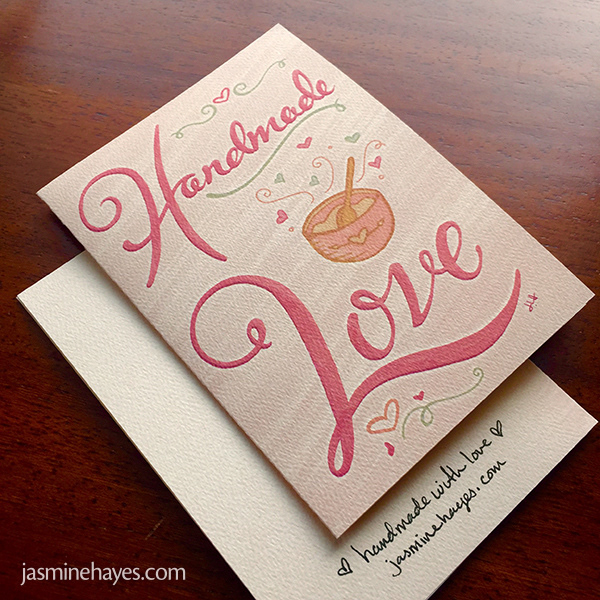 Handmade
Love
♡ handmade with love ♡
jasminehayes.com
jasminehayes.com